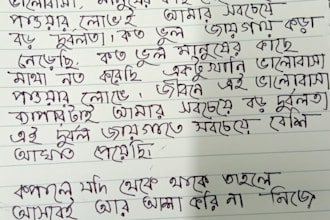 ভালোবাসা, মানুষের
পাওয়ার লোভেই আমার সবচেয়ে
বড় দুর্বলতা। কত ভুল জায়গায় কড়া
নেড়েছি, কত ভুল মানুষের কাছে
মাথা নত করেছি একটুখানি ভালোবাসা
পাওয়ার লোভে। জীবনে এই ভালোবাসা
ব্যাপারটাই আমার সবচেয়ে বড় দুর্বলতা
এই দুর্বল জায়গাতে সবচেয়ে বেশি
আঘাত পেয়েছি
কপালে যদি থেকে থাকে তাহলে
আসবেই আর আশা করি না নিজে